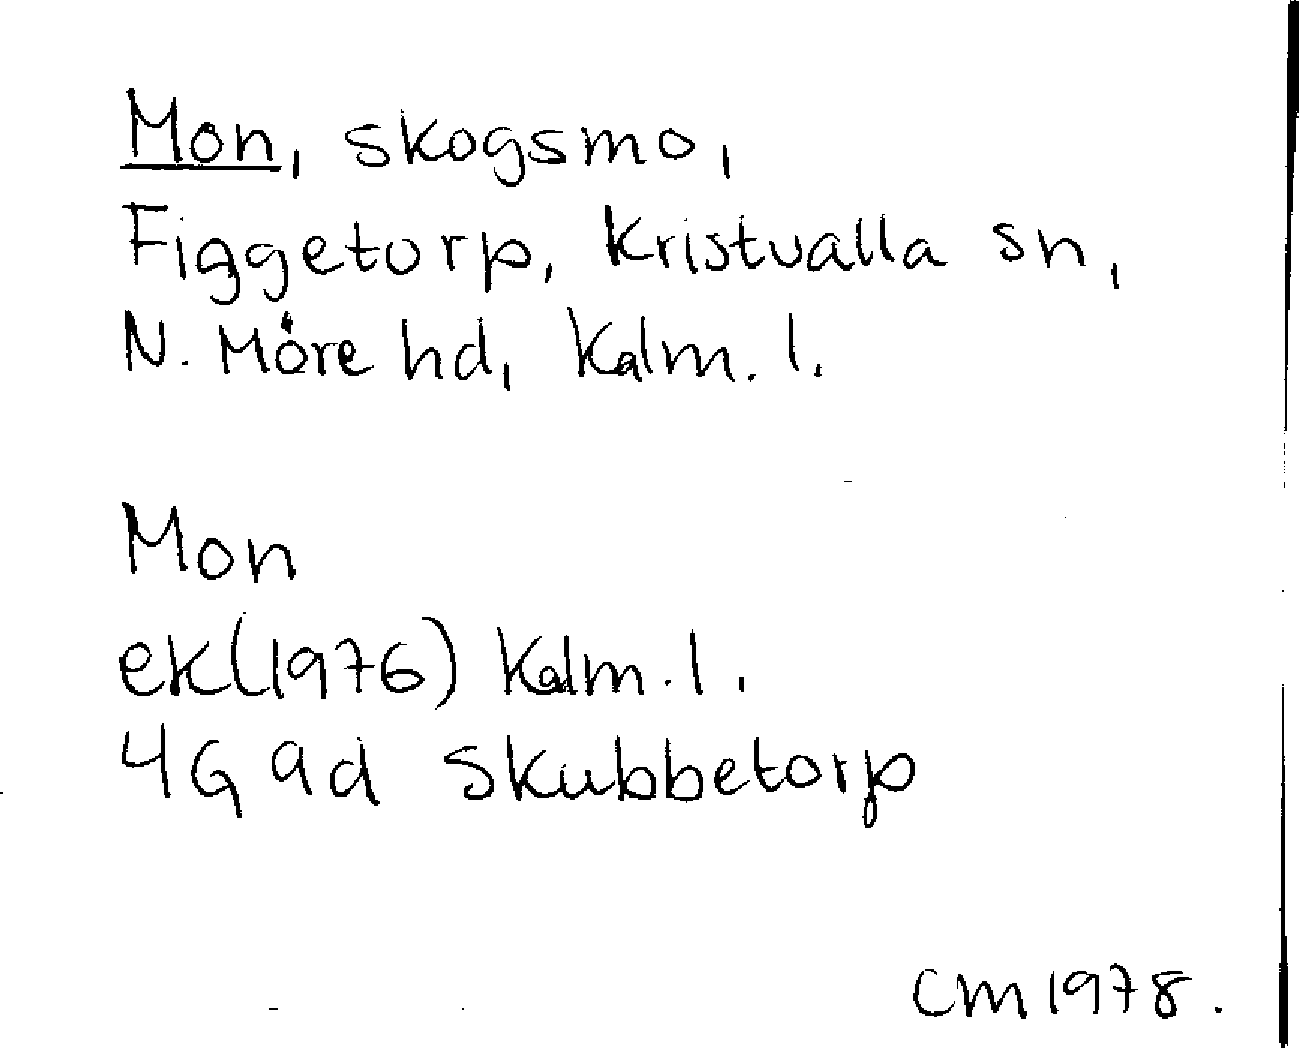 Mon, skogsmo,
Figgetorp, Kristvalla sn,
N. Möre hd, Kalm. l.
Mon
ek(1976) Kalm. l.
4G 9d Skubbetorp
CM 1978.